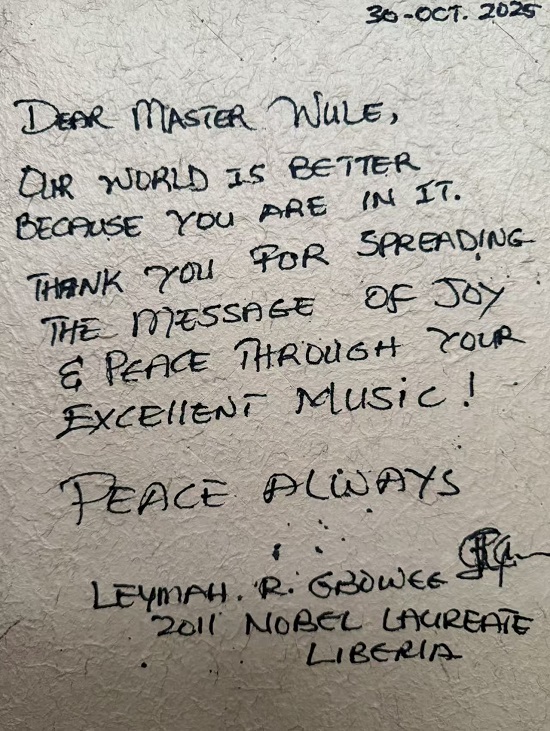 30-OCT. 2025
DEAR MASTER WULE,
OUR WORLD IS BETTER
BECAUSE YOU ARE IN IT.
THANK YOU FOR SPREADING
THE MESSAGE OF JOY
& PEACE THROUGH YOUR
EXCEllENT MUSiC!
PEACE ALWAYS
LEYMAH. R. GBOWEE
2011 NOBEL LAUREATE
LIBERIA